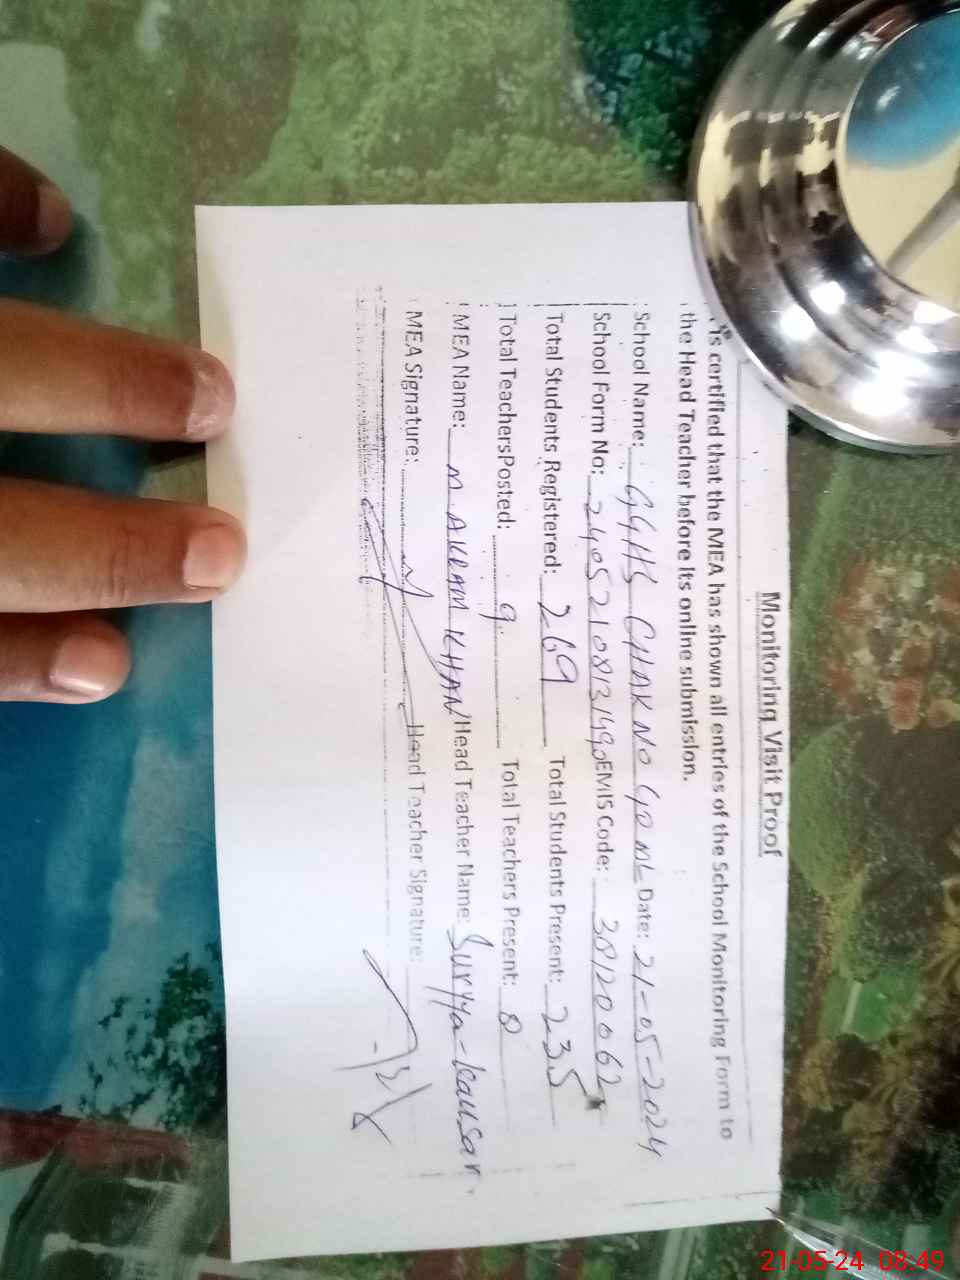 Monitoring Visit Proof
is certified that the MEA has shown all entries of the School Monitoring Form to
the Head Teacher before its online submission.
School Name: GGHS CHAK NO 40 ML Date: 21-05-2024
School Form No: 2405210813490 EMIS Code: 38120062
Total Students Registered: 269 Total Students Present: 235
Total TeachersPosted: 9 Total Teachers Present: 8
MEA Name: M AKRAM KHAN Head Teacher Name: Suryya-kausar.
MEA Signature: Head Teacher Signature:
21-05-24 08:49